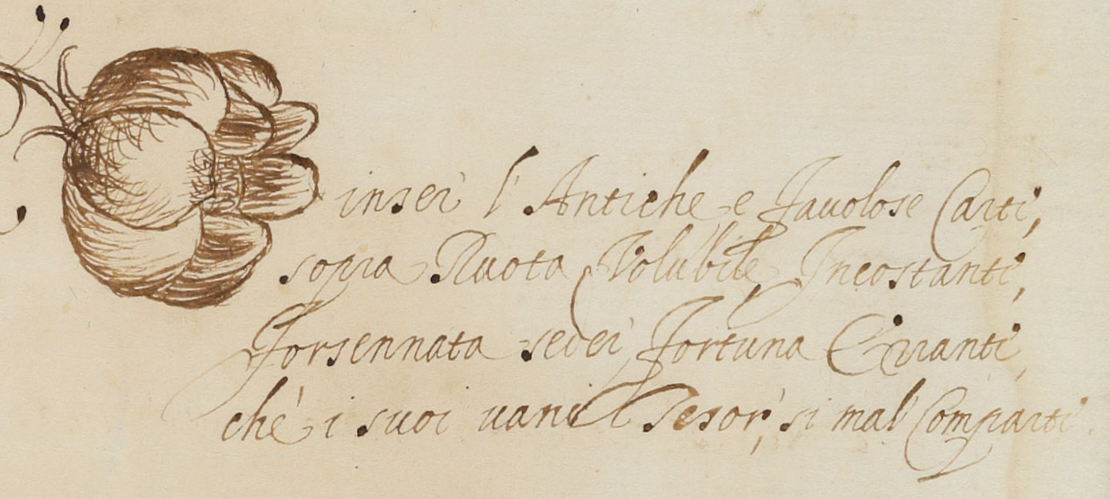 inser l'Antiche e Fauolose Carte,
sopra Ruota Volubile, Incostante,
Forsennata seder Fortuna Errante,
che i suoi uani Tesor, si mal Comparte